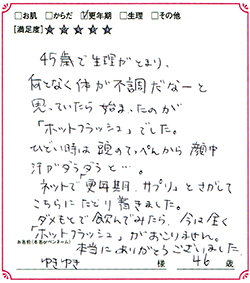 □お肌 □からだ ☑更年期 □生理 □その他
[満足度]☆☆☆☆☆
45歳で生理がとまり、
何となく体が不調だなーと
思っていたら始まったのが
「ホットフラッシュ」でした。
ひどい時は頭のてっぺんから顔中
汗がダラダラと…。
ネットで「更年期、サプリ」とさがして
こちらにたどり着きました。
ダメもとで飲んでみたら、今は全く
「ホットフラッシュ」がおこりません。
本当にありがとうございました
お名前(本名orペンネーム)
ゆきゆき 様 46 歳